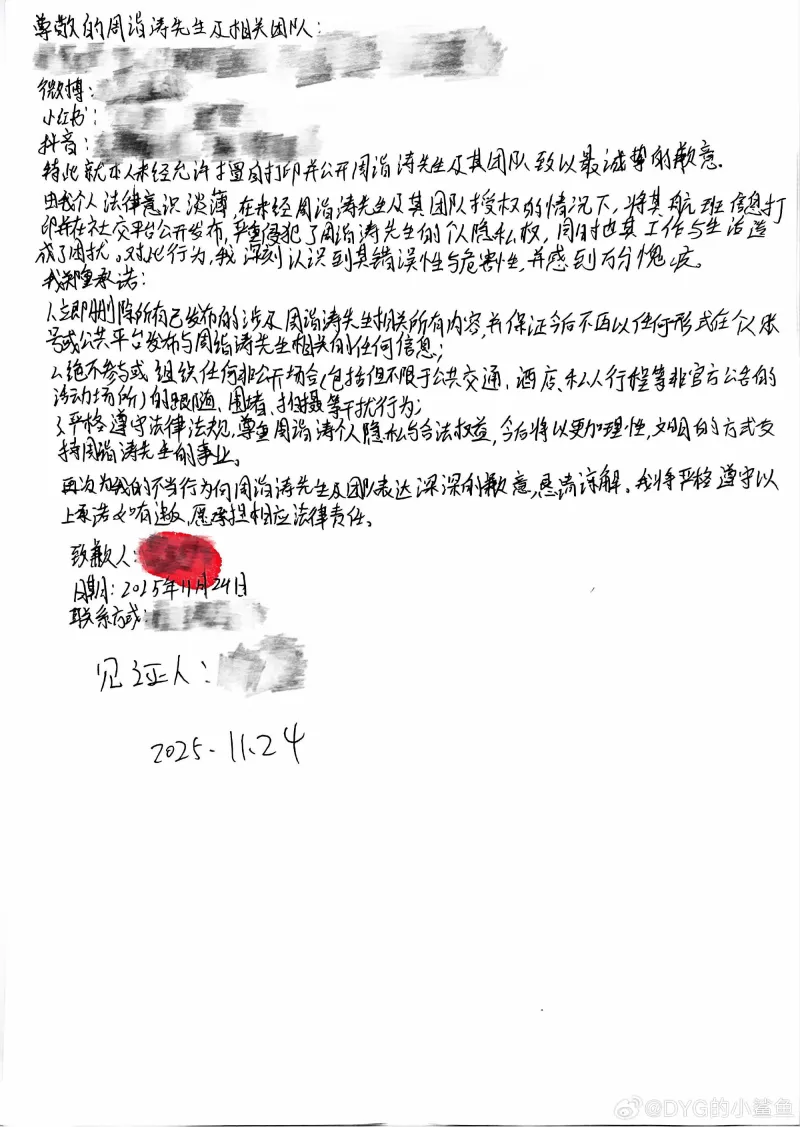 尊敬的周诣涛先生及相关团队:
微博:
小红书:
抖音:
特此就本人未经允许擅自打印并公开周诣涛先生及其团队致以最诚挚的歉意.
由我个人法律意识淡薄,在未经周诣涛先生及其团队授权的情况下,将其航班信息打
印并在社交平台公开发布,严重侵犯了周诣涛先生的个人隐私权,同时也其工作与生活造
成了困扰。对此行为,我深刻认识到其错误性与危害性,并感到万分愧疚。
我郑重承诺:
1.立即删除所有已发布的涉及周诣涛先生相关所有内容,并保证今后不再以任何形式在个人账
号或公共平台发布与周诣涛先生相关的任何信息;
2.绝不参与或组织任何非公开场合(包括但不限于公共交通、酒店、私人行程等非官方公告的
活动场所)的跟随、围堵、拍摄等干扰行为;
3.严格遵守法律法规,尊重周诣涛个人隐私与合法权益,今后将以更加理性,文明的方式支
持周诣涛先生的事业。
再次为我的不当行为向周诣涛先生及团队表达深深的歉意,恳请谅解。我将严格遵守以
上承诺如有违反,愿承担相应法律责任。
致歉人:
日期:2025年11月24日
联系方式:
见证人:
2025.11.24
@DYG的小鲨鱼